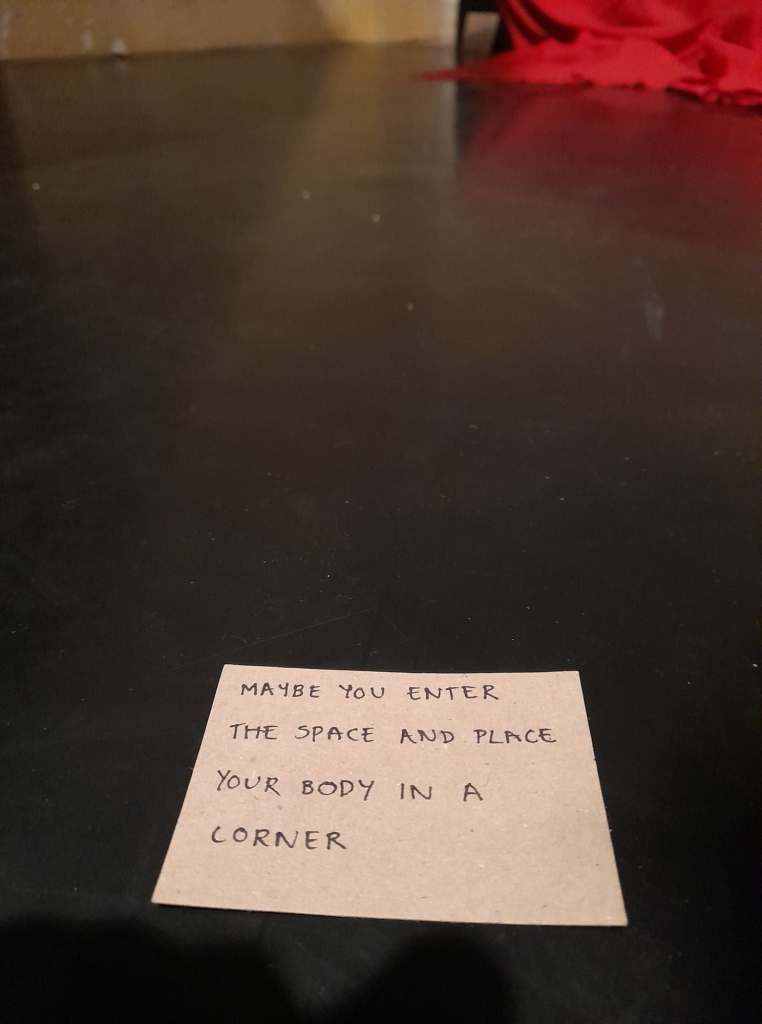 MAYBE YOU ENTER
THE SPACE AND PLACE
YOUR BODY IN A
CORNER